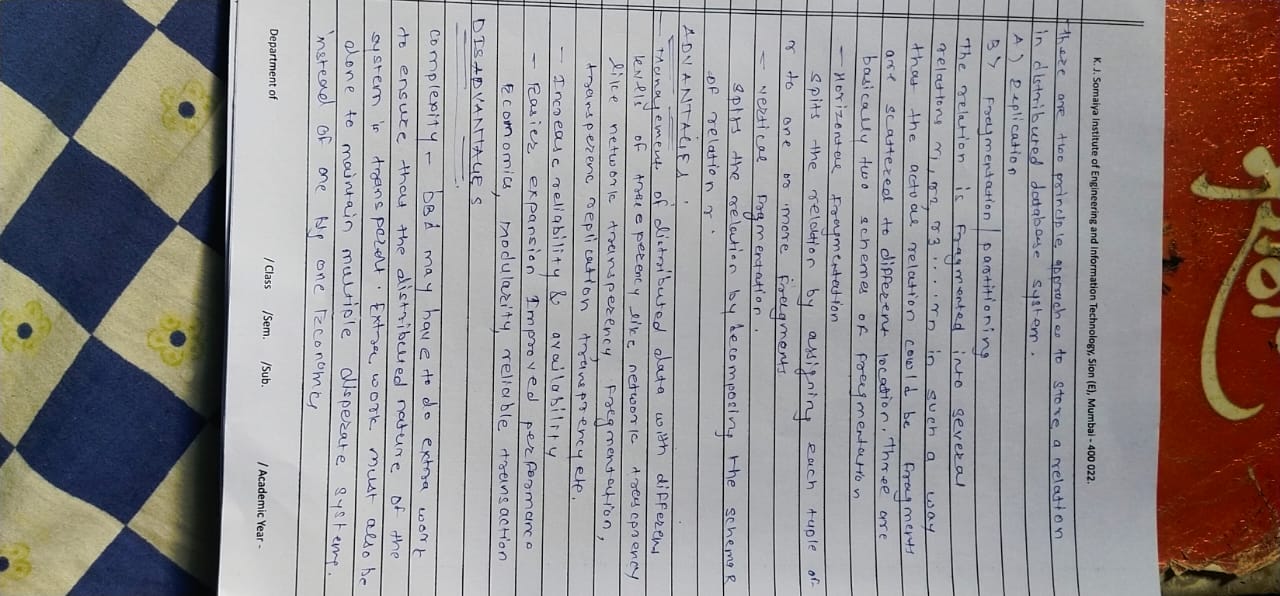 K. J. Somaiya Institute of Engineering and Information Technology, Sion (E), Mumbai - 400 022.
There are two principle approaches to store a relation
in distributed database system.
A) Replication
B) Fragmentation / partitioning
The relation is fragmented into several
relations r1, r2, r3 .... rn in such a way
that the actual relation could be fragments
are scattered to different location. There are
basically two schemes of fragmentation
- Horizontal Fragmentation
Spits the relation by assigning each tuple of
r to one or more fragments
- vertical Fragmentation.
Splits the relation by decomposing the schema R
of relation r.
ADVANTAGES.
- Management of distributed data with different
levels of like network
like network transperency, Fregmentation,
transperenc replication etc.
- Increase reliability & availability
- Easier expansion Improved performance
Economics, modularity, reliable transaction
DISADVANTAGES
Complexity - DBA may have to do extra work
to ensure that the distributed nature of the
system is Extra work must also be
done to maintain multiple disperate systems.
instead of one big one Economics
Department of / Class /Sem. /Sub. / Academic Year -